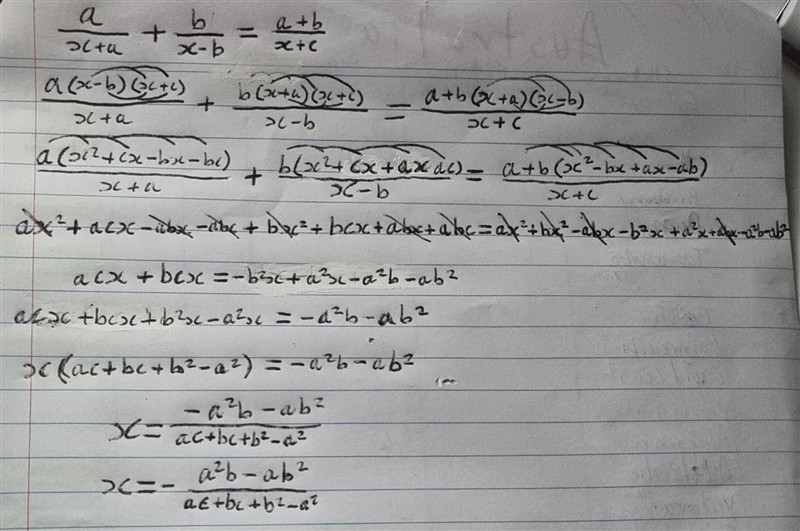 a/(x+a) + b/(x-b) = (a+b)/(x+c)
a(x-b)(x+c)/(x+a) + b(x+a)(x+c)/(x-b) = a+b(x+a)(x-b)/(x+c)
a(x²+cx-bx-bc)/(x+a) + b(x²+cx+ax ac)/(x-b) = a+b(x²-bx+ax-ab)/(x+c)
ax²+acx-abx-abc+bx²+bcx+abx+abc=ax²+bx²-abx-b²x+a²x+abx-a²b-ab²
acx+bcx=-b²x+a²x-a²b-ab²
acx+bcx+b²x-a²x=-a²b-ab²
x(ac+bc+b²-a²)=-a²b-ab²
x=(-a²b-ab²)/(ac+bc+b²-a²)
x=-(a²b-ab²)/(ac+bc+b²-a²)